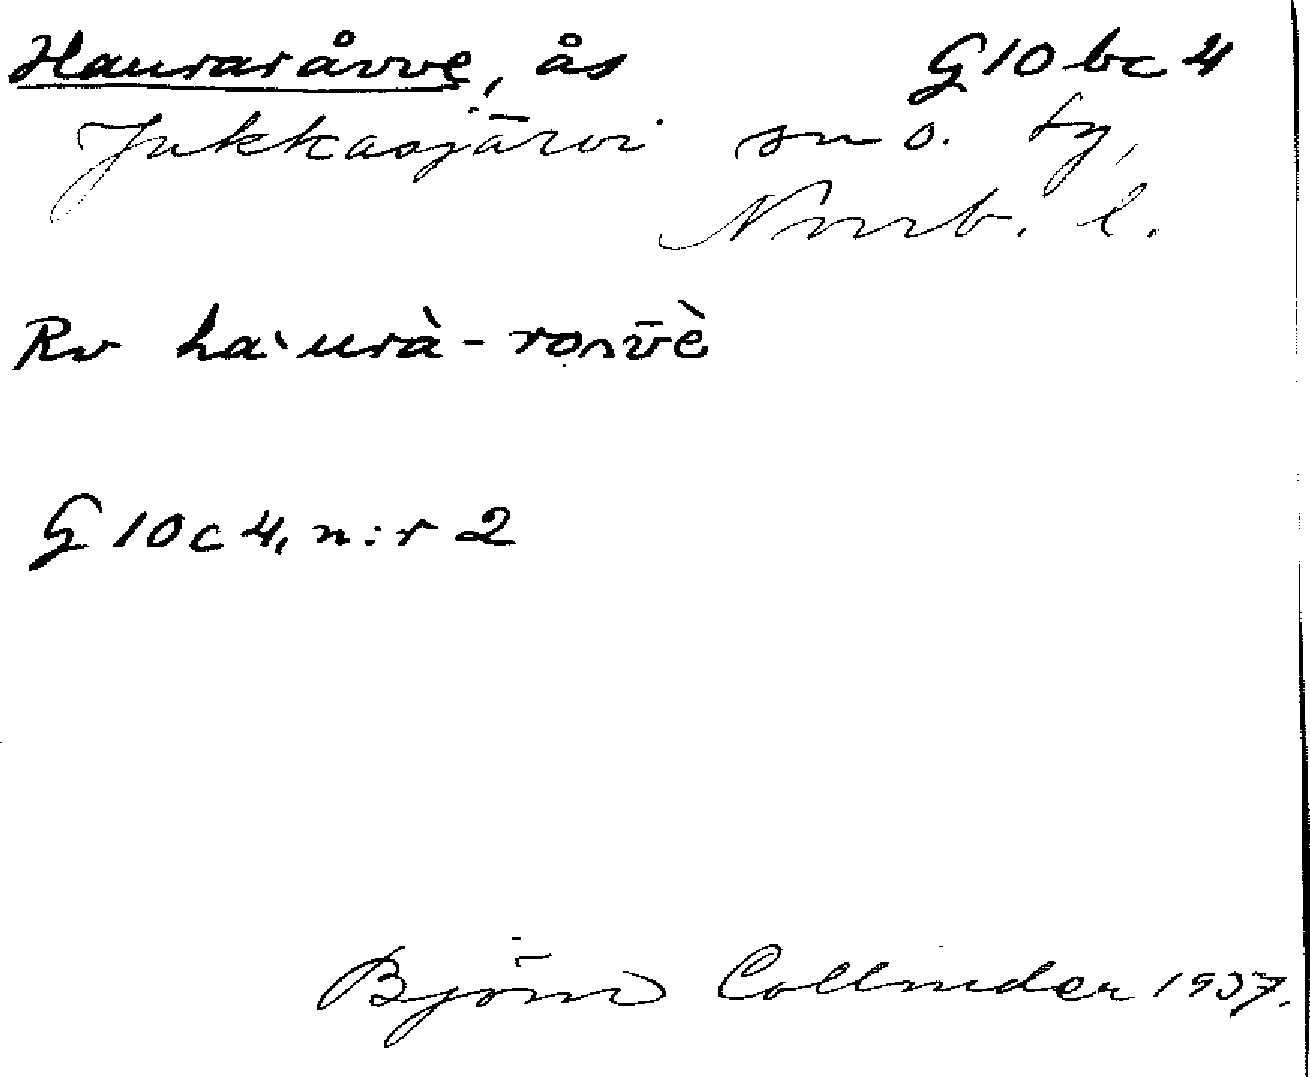 Hauraråvve, ås G10bc4
Jukkasjärvi sn o. tg,
Norrb. l.
Rv ha`urà-roₙv̄è
G10c4, n:r 2
Björn Collinder 1937.